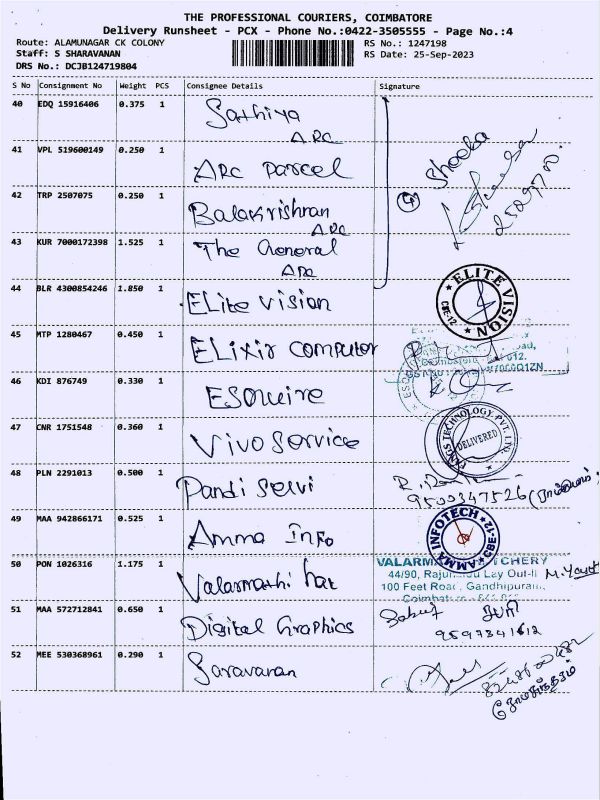 THE PROFESSIONAL COURIERS, COIMBATORE
Delivery Runsheet - PCX - Phone No.:0422-3505555 - Page No.:4
Route: ALAMUNAGAR CK COLONY
Staff: S SHARAVANAN
DRS No.: DCJB124719804
RS No.: 1247198
RS Date: 25-Sep-2023
S No Consignment No Weight PCS Consignee Details Signature
40 EDQ 15916406 0.375 1 Sathiya
ARC
41 VPL 519600149 0.250 1 ARC parcel
42 TRP 2507075 0.250 1 Balakrishnan
ARC
43 KUR 7000172398 1.525 1 The General
ARC
44 BLR 4300854246 1.850 1 ELite vision
ELITE VISION
CBE-12
45 MTP 1280467 0.450 1 ELixir computer
46 KDI 876749 0.330 1 ESquire
47 CNR 1751548 0.360 1 Vivo Service
TECHNOLOGY PVT. LTD.
DELIVERED
48 PLN 2291013 0.500 1 Pandi selvi
9500347526
49 MAA 942866171 0.525 1 Amma Info
AMMA INFOTECH
CBE-12
50 PON 1026316 1.175 1 Valarmathi hat
44/90,
100 Feet Road, Gandhipuram,
51 MAA 572712841 0.650 1 Digital Graphics
9597341612
52 MEE 530368961 0.290 1 Saravanan